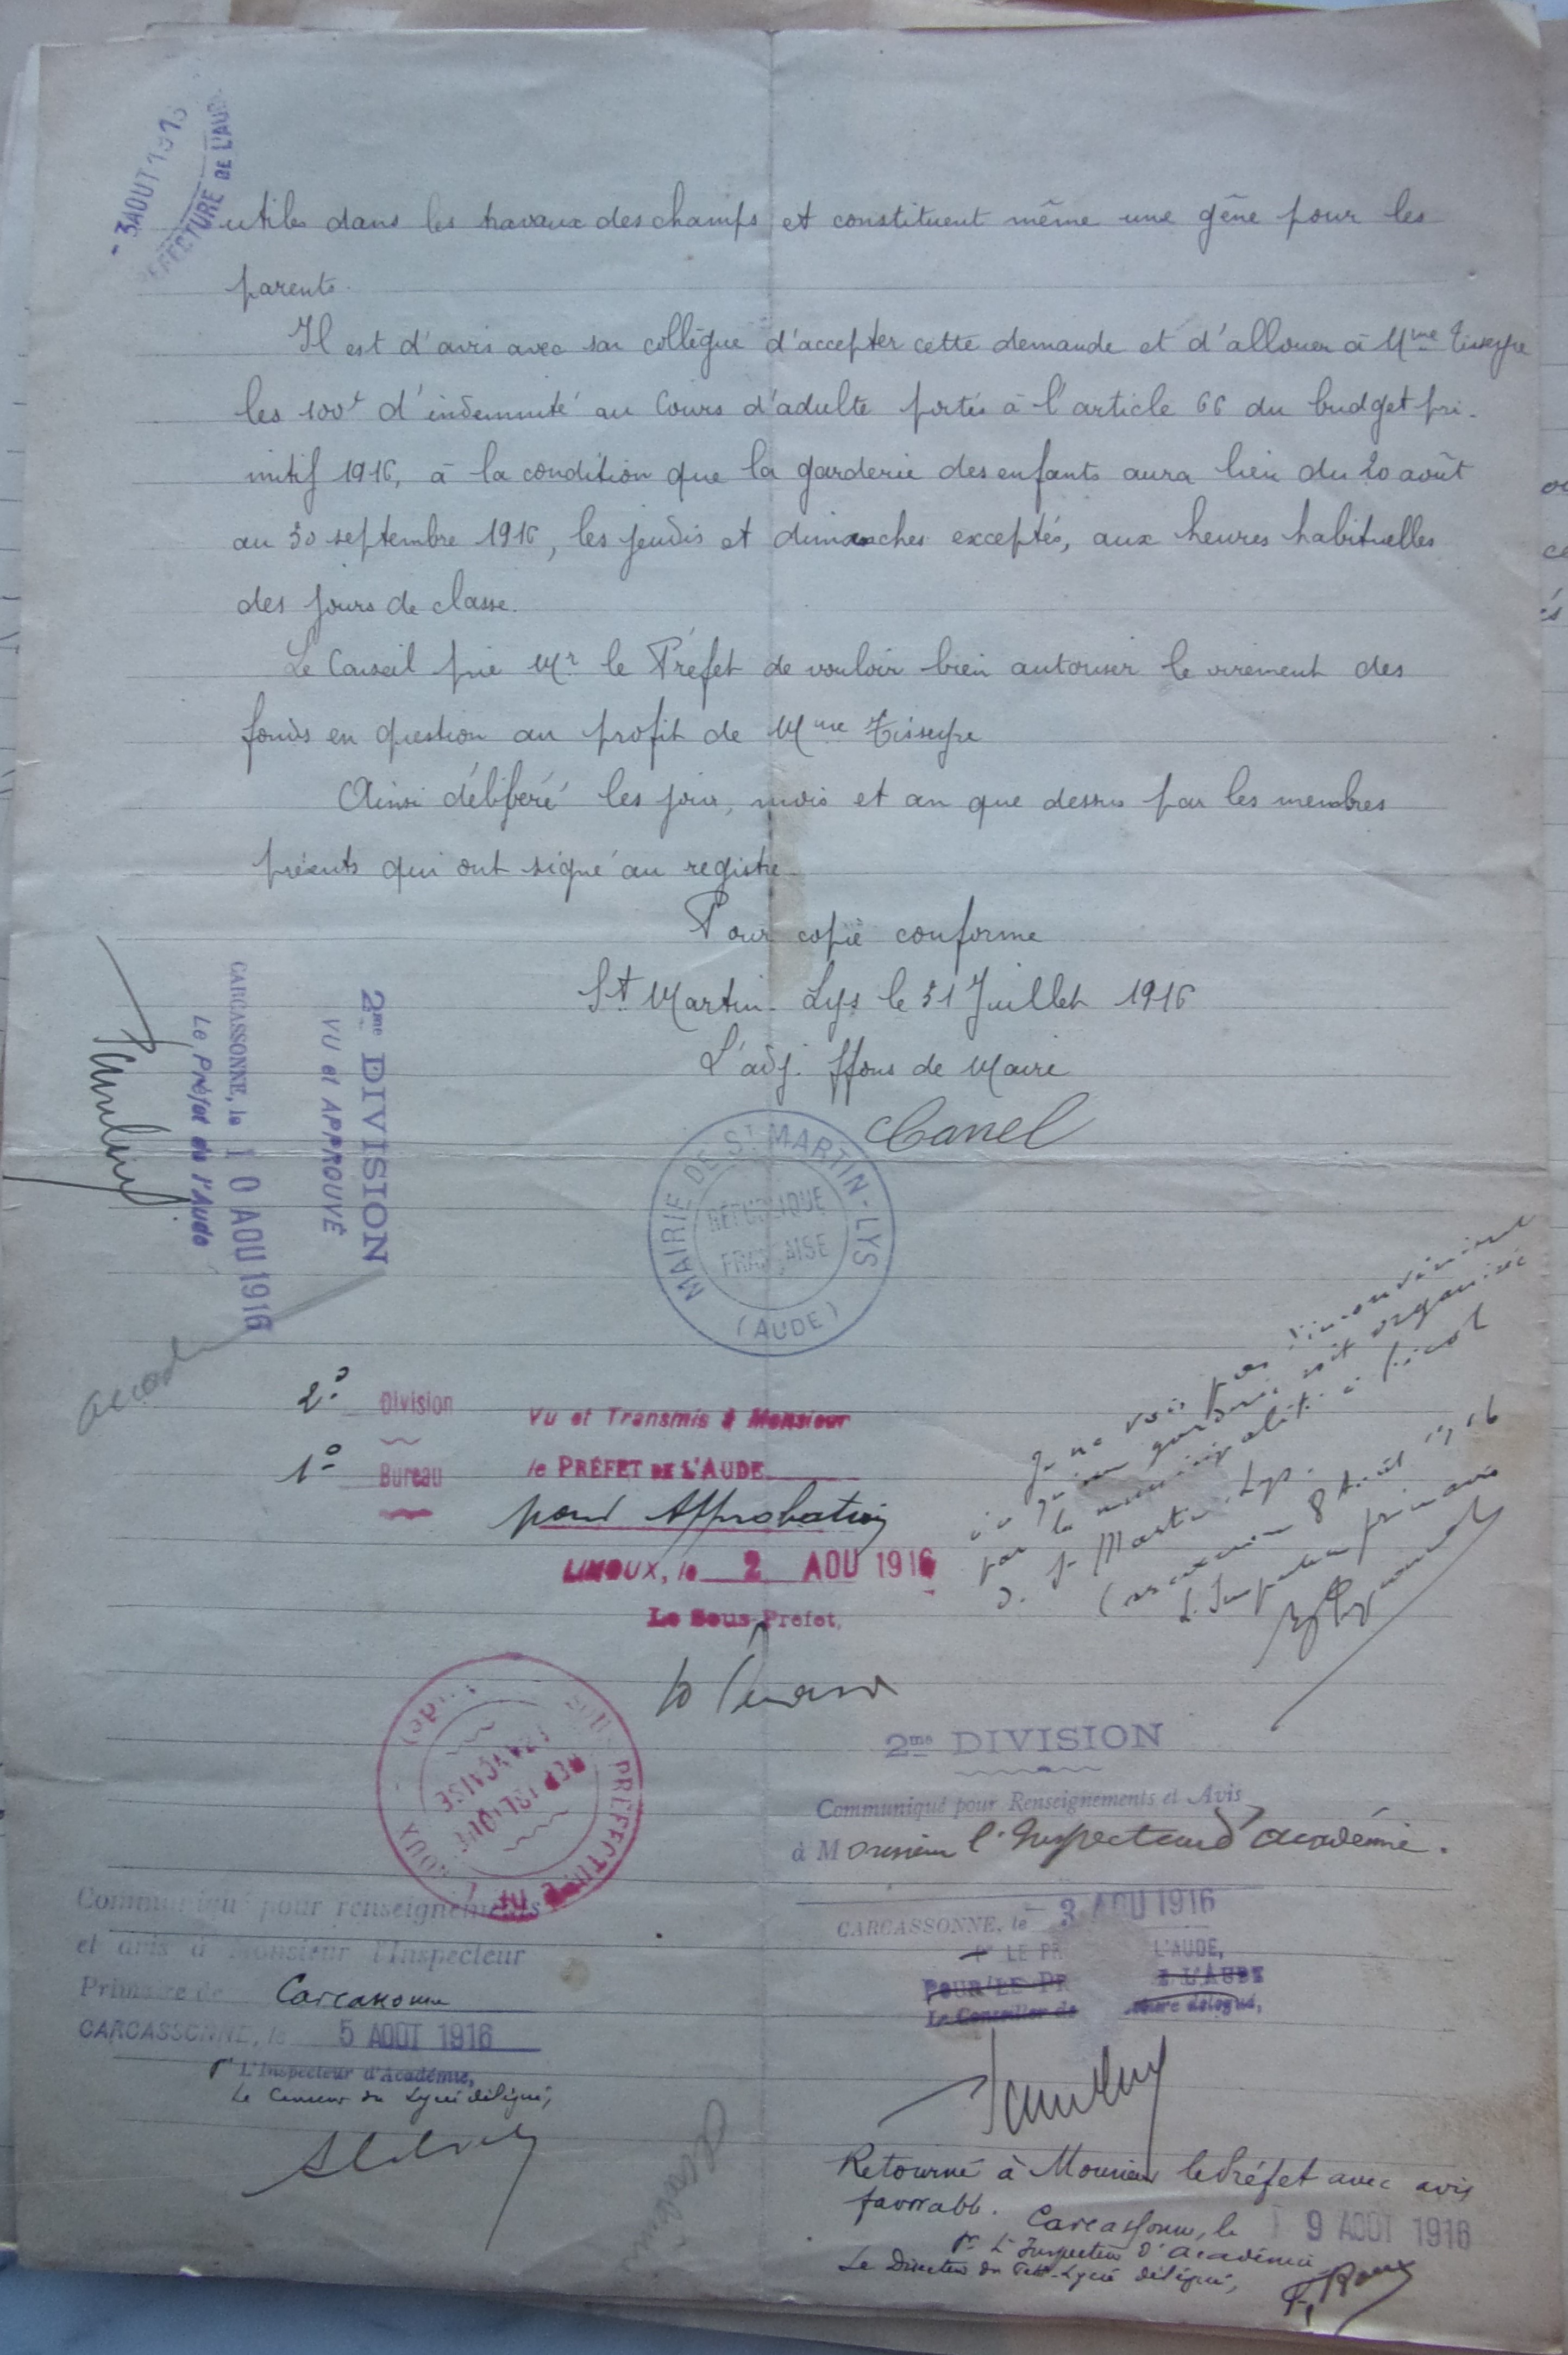 - 3 AOUT 1916
PRÉFECTURE DE L'AUDE
utiles dans les travaux des champs et constituent même une gêne pour les
parents.
Il est d'avis avec son collègue d'accepter cette demande et d'allouer à Mme Tisseyre
les 100f d'indemnité au Cours d'adulte portés à l'article 66 du budget pri-
mitif 1916, à la condition que la garderie des enfants aura lieu du 20 août
au 30 septembre 1916, les jeudis et dimanches exceptés, aux heures habituelles
des jours de classe.
Le Conseil prie Mr le Préfet de vouloir bien autoriser le virement des
fonds en question au profit de Mme Tisseyre
Ainsi délibéré les jour, mois et an que dessus par les membres
présents qui ont signé au registre.
Pour copie conforme
St Martin-Lys le 31 Juillet 1916
L'adj. ffons de Maire
Canel
MAIRIE DE ST MARTIN-LYS
RÉPUBLIQUE
FRANÇAISE
(AUDE)
2me DIVISION
VU et APPROUVÉ
CARCASSONNE, le 10 AOU 1916
Le Préfet de l'Aude
2e Division
1e Bureau
Vu et Transmis à Monsieur
le PRÉFET DE L'AUDE
pour Approbation
LIMOUX, le 2 AOU 1916
Le Sous-Préfet,
SOUS-PRÉFECTURE DE LIMOUX
(Aude)
RÉPUBLIQUE
FRANÇAISE
Je ne vois pas d'inconvénient
à ce qu'une garderie soit organisée
par la municipalité
de St Martin-Lys.
Carcassonne 8 Août 1916
L'Inspecteur primaire
2me DIVISION
Communiqué pour Renseignements et Avis
à Monsieur l'Inspecteur d'académie.
CARCASSONNE, le - 3 AOU 1916
Pr LE PR L'AUDE,
POUR LE PR E L'AUDE
Le Conseiller de ture délégué,
Communiqué pour renseignements
et avis à Monsieur l'Inspecteur
Primaire de Carcassonne
CARCASSONNE, le 5 AOUT 1916
Pr L'Inspecteur d'Académie,
Le Censeur du Lycée délégué,
Retourné à Monsieur le Préfet avec avis
favorable. Carcassonne, le 9 AOUT 1916
Pr L'Inspecteur d'Académie
Le Directeur du Petit-Lycée délégué,
F. Roux